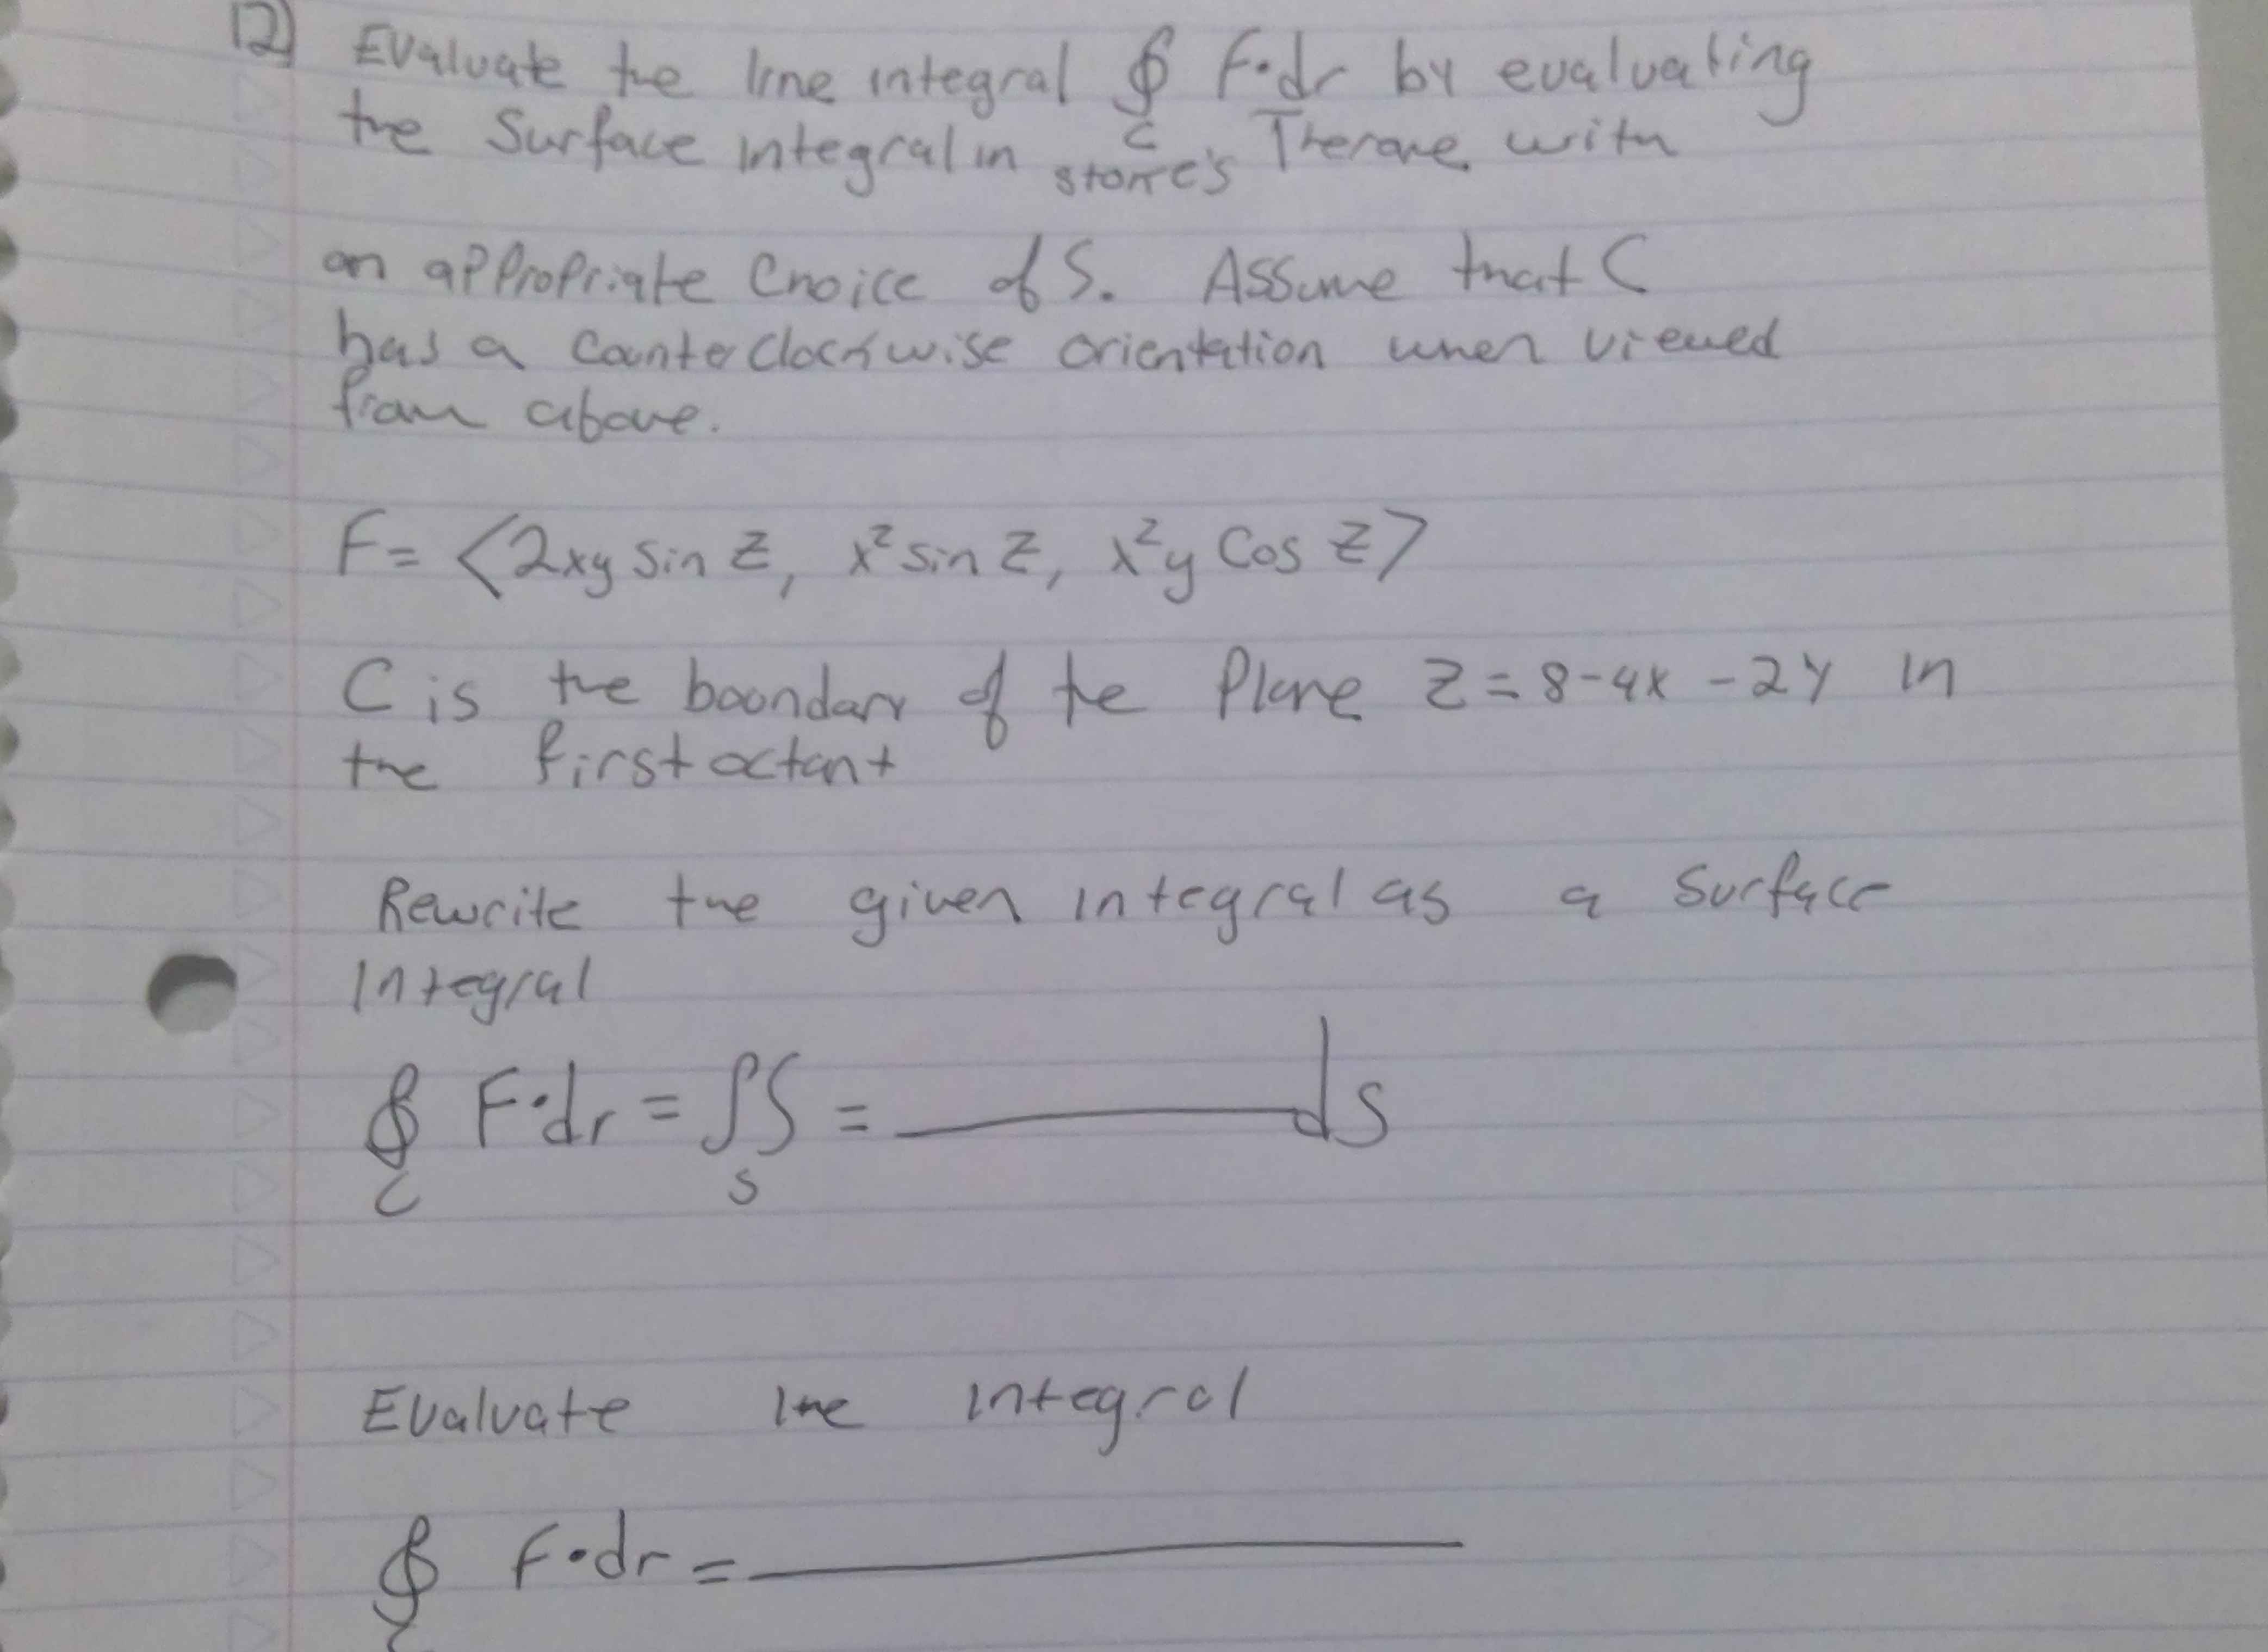 12) Evaluate the line integral ∮ F·dr by evaluating
C
the Surface integral in stoke's Therone with
an appropriate Choice of S. Assume that C
has a Counterclockwise orientation when viewed
from above.
F = <2xy sin z, x² sin z, x²y Cos z>
C is the boundary of the Plane z = 8-4x-2y in
the first octant
Rewrite the given integral as a Surface
Integral
∮ F·dr = ∫∫ = ________ ds
C S
Evaluate the integral
∮ F·dr = ________
C